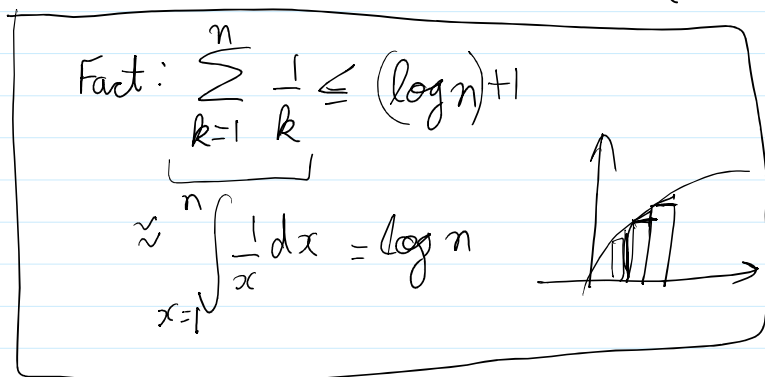 Fact: n∑k=1 1/k ≤ (log n)+1
≈ n∫x=1 1/x dx = log n